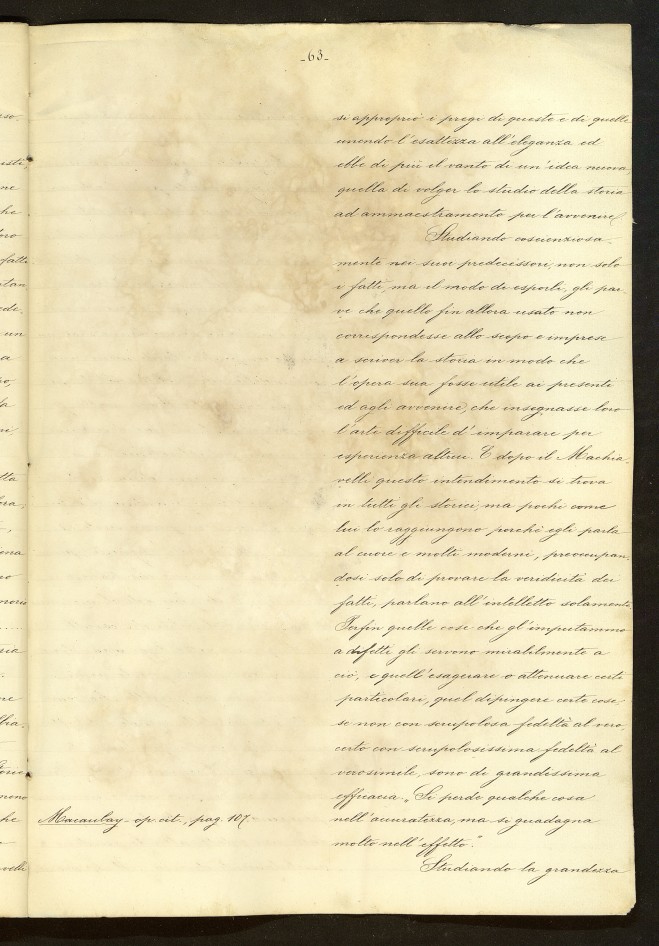 -63-
si appropriò i pregi di queste e di quelle
unendo l'esattezza all'eleganza ed
ebbe di più il vanto di un'idea nuova,
quella di volger lo studio della storia
ad ammaestramento per l'avvenire.
Studiando coscienziosa-
mente nei suoi predecessori, non solo
i fatti, ma il modo di esporli, gli par-
ve che quello fin allora usato non
corrispondesse allo scopo e imprese
a scriver la storia in modo che
l'opera sua fosse utile ai presenti
ed agli avvenire, che insegnasse loro
l'arte difficile d'imparare per
esperienza altrui. E dopo il Machia-
velli questo intendimento si trova
in tutti gli storici, ma pochi come
lui lo raggiungono perchè egli parla
al cuore e molti moderni, preoccupan-
dosi solo di provare la veridicità dei
fatti, parlano all'intelletto solamente.
Perfin quelle cose che gl'imputammo
a difetti gli servono mirabilmente a
ciò, e quell'esagerare o attenuare certi
particolari, quel dipingere certe cose
se non con scrupolosa fedeltà al vero,
certo con scrupolosissima fedeltà al
verosimile, sono di grandissima
efficacia. "Si perde qualche cosa
Macaulay - op. cit., pag. 107.
nell'accuratezza, ma si guadagna
molto nell'effetto."
Studiando la grandezza